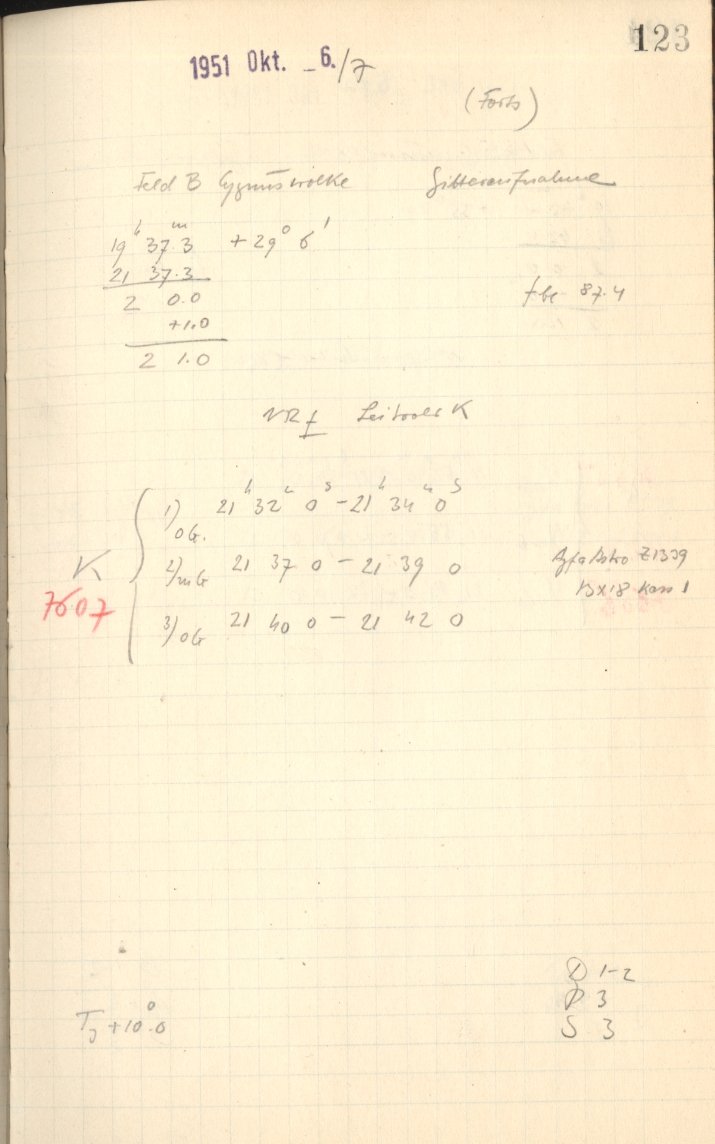 123
1951 Okt. _6./7
(Forts)
Feld B Cygnuswolke Gitteraufnahme
19h 37.3m +29° 6'
21 37.3
2 0.0
fbr 87.4
+1.0
2 1.0
K
1) 21h 32m 0s - 21h 34m 0s
oG.
2) mG 21 37 0 - 21 39 0
Agfa Astro Z1339
K
13x18 Kass 1
7607
3) oG 21 40 0 - 21 42 0
D 1-2
P 3
T +10°.0
S 3